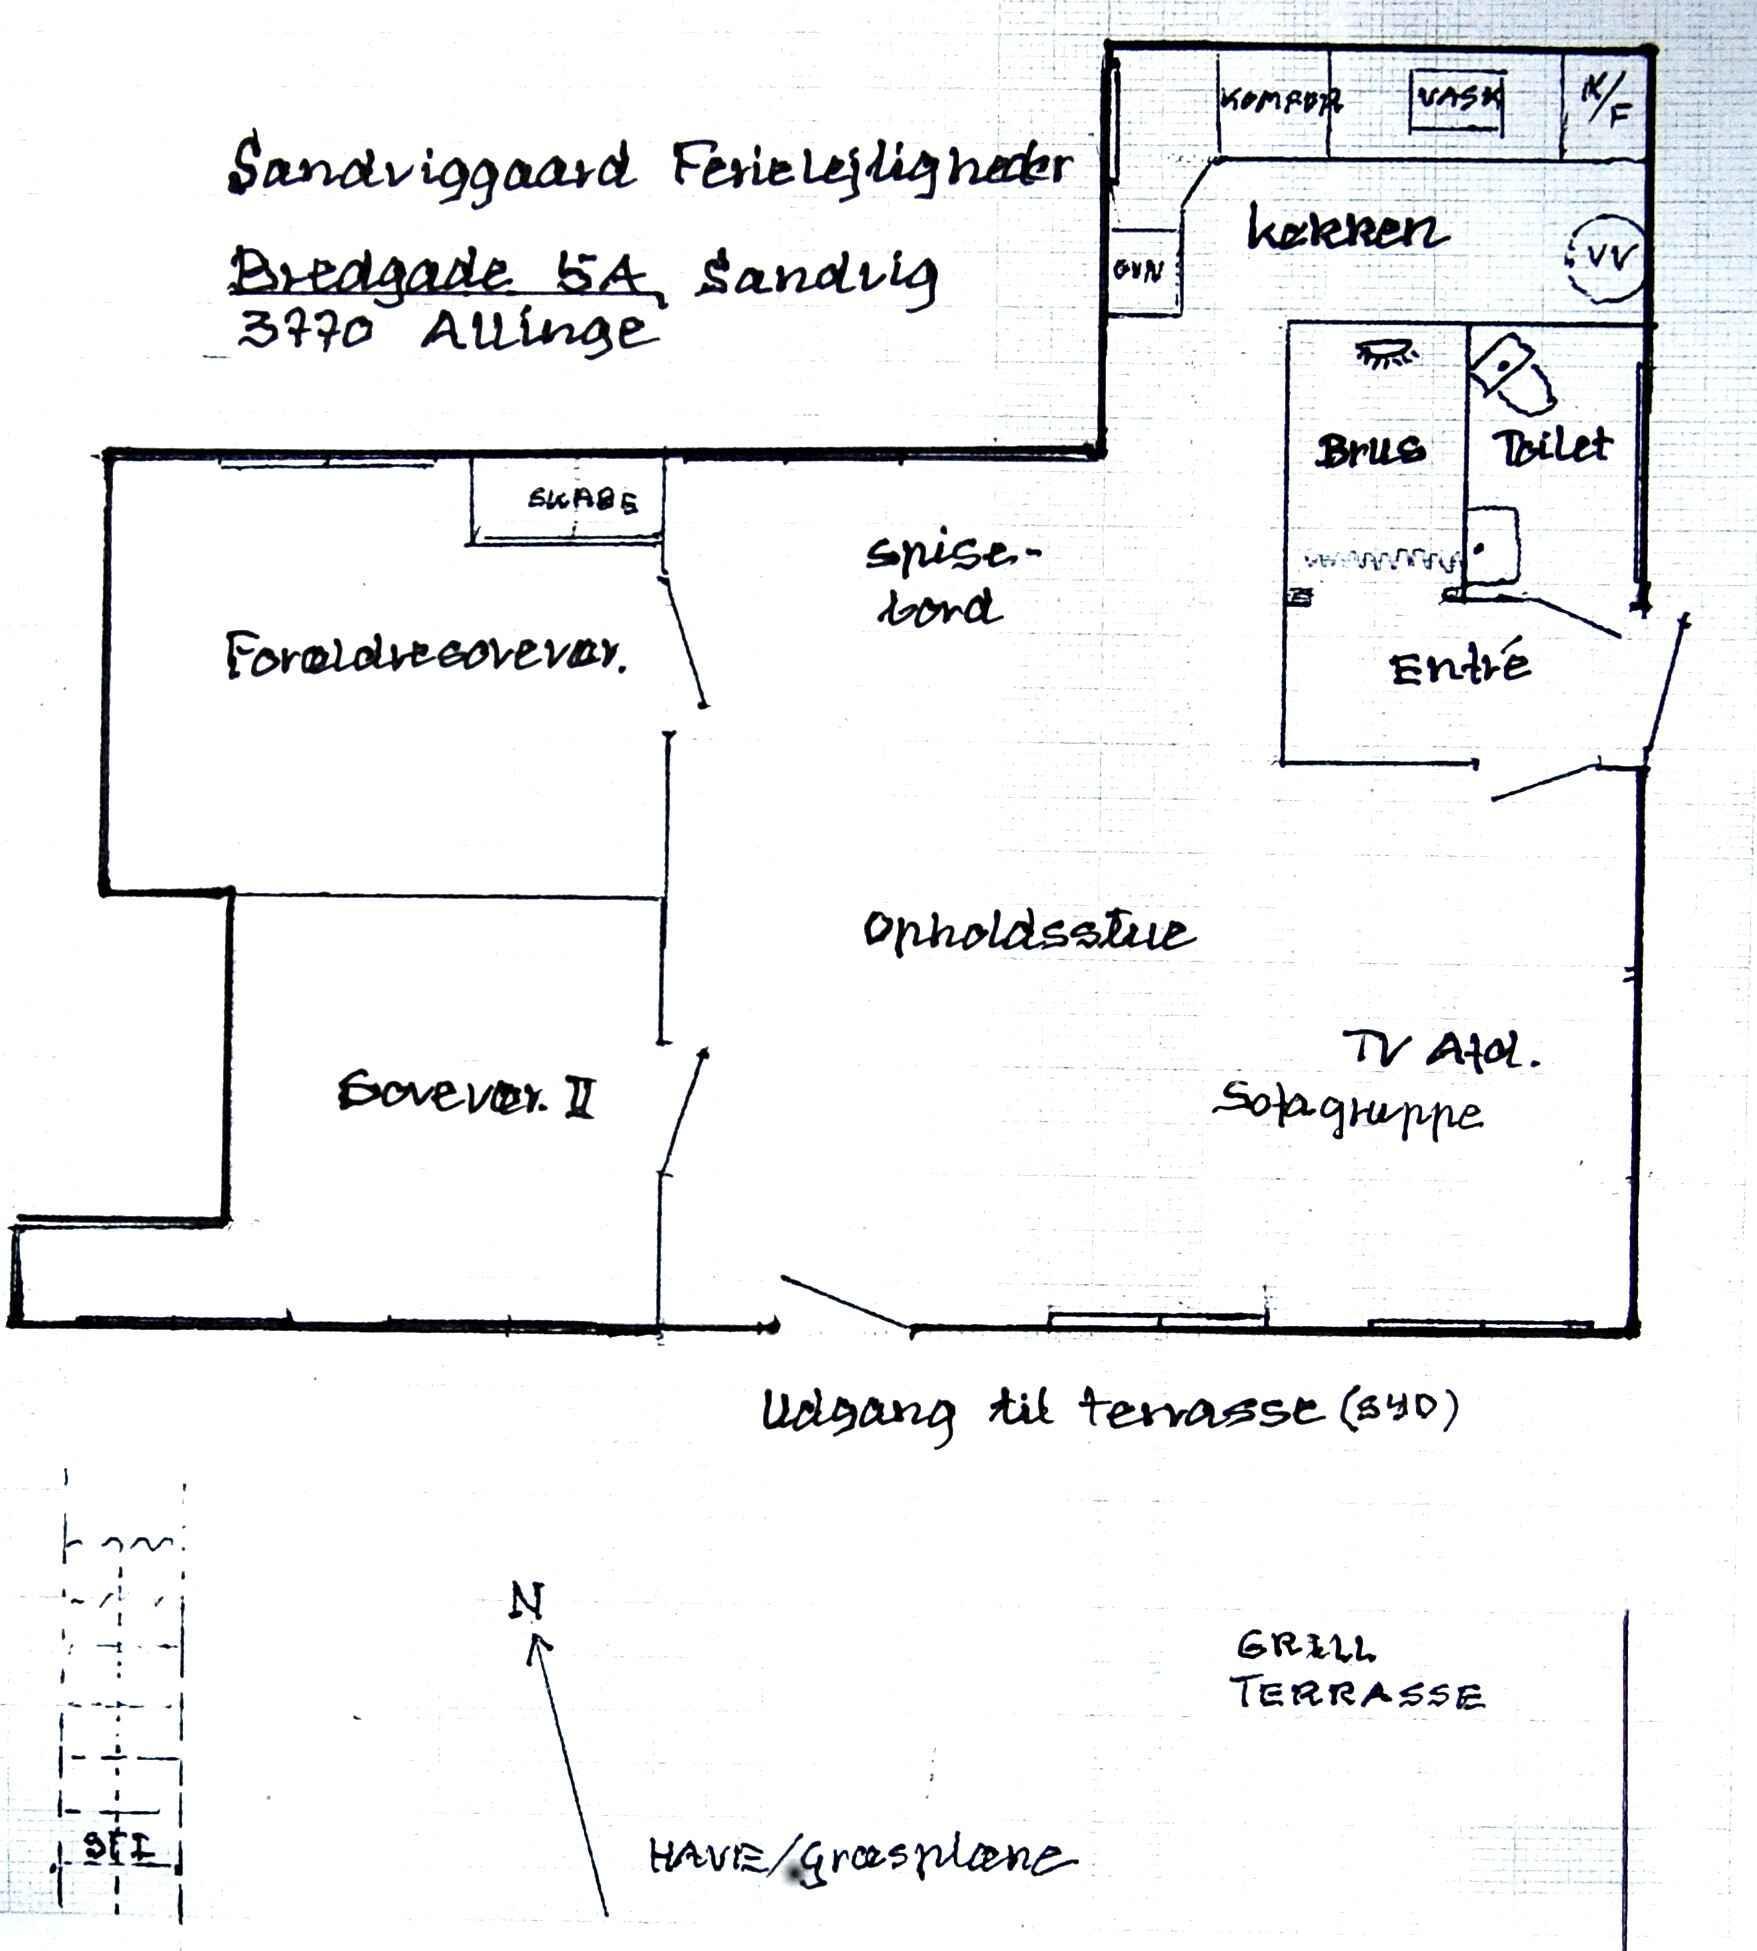 Sandviggaard Ferielejligheder
Bredgade 5A, Sandvig
3770 Allinge
KOMFUR
VASK
K/F
Køkken
VV
OVN
Brus
Toilet
SKABE
spise-
bord
Forældresovevær.
Entré
Opholdsstue
TV Afd.
Sofagruppe
Sovevær. II
Udgang til terrasse (SYD)
N
GRILL
TERRASSE
STI
HAVE/Græsplæne